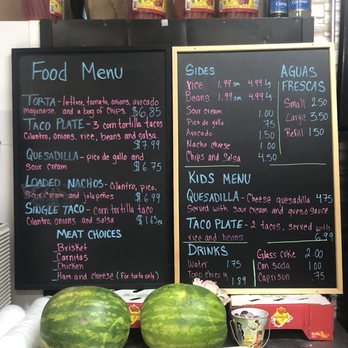 Food Menu
TORTA - lettuce, tomato, onions, avocado
mayonaise, and a bag of chips $6.85
TACO PLATE - 3 corn tortilla tacos
Cilantro, onions, rice, beans and salsa
$7.99
QUESADILLA - pico de gallo and
Sour cream $6.75
LOADED NACHOS - Cilantro, pico,
Sour cream and jalapeños $6.99
SINGLE TACO - Corn tortilla taco
Cilantro, onions and salsa $1.85
MEAT CHOICES
Brisket
Carnitas
Chicken
Ham and cheese (For torta only)
SIDES
rice 1.99 sm 4.99 Lg
Beans 1.99 sm 4.99 Lg
Sour cream 1.00
Pico de gallo .75
Avocado 1.50
Nacho cheese 1.00
Chips and Salsa 4.50
AGUAS
FRESCAS
Small 2.50
Large 3.50
Refill 1.50
KIDS MENU
QUESADILLA - Cheese quesadilla 4.75
Served with sour cream and queso sauce
TACO PLATE - 2 tacos, served with
rice and beans 6.99
DRINKS
Water .75
Topo chico 1.89
Glass coke 2.00
Can soda 1.00
Caprisun .75